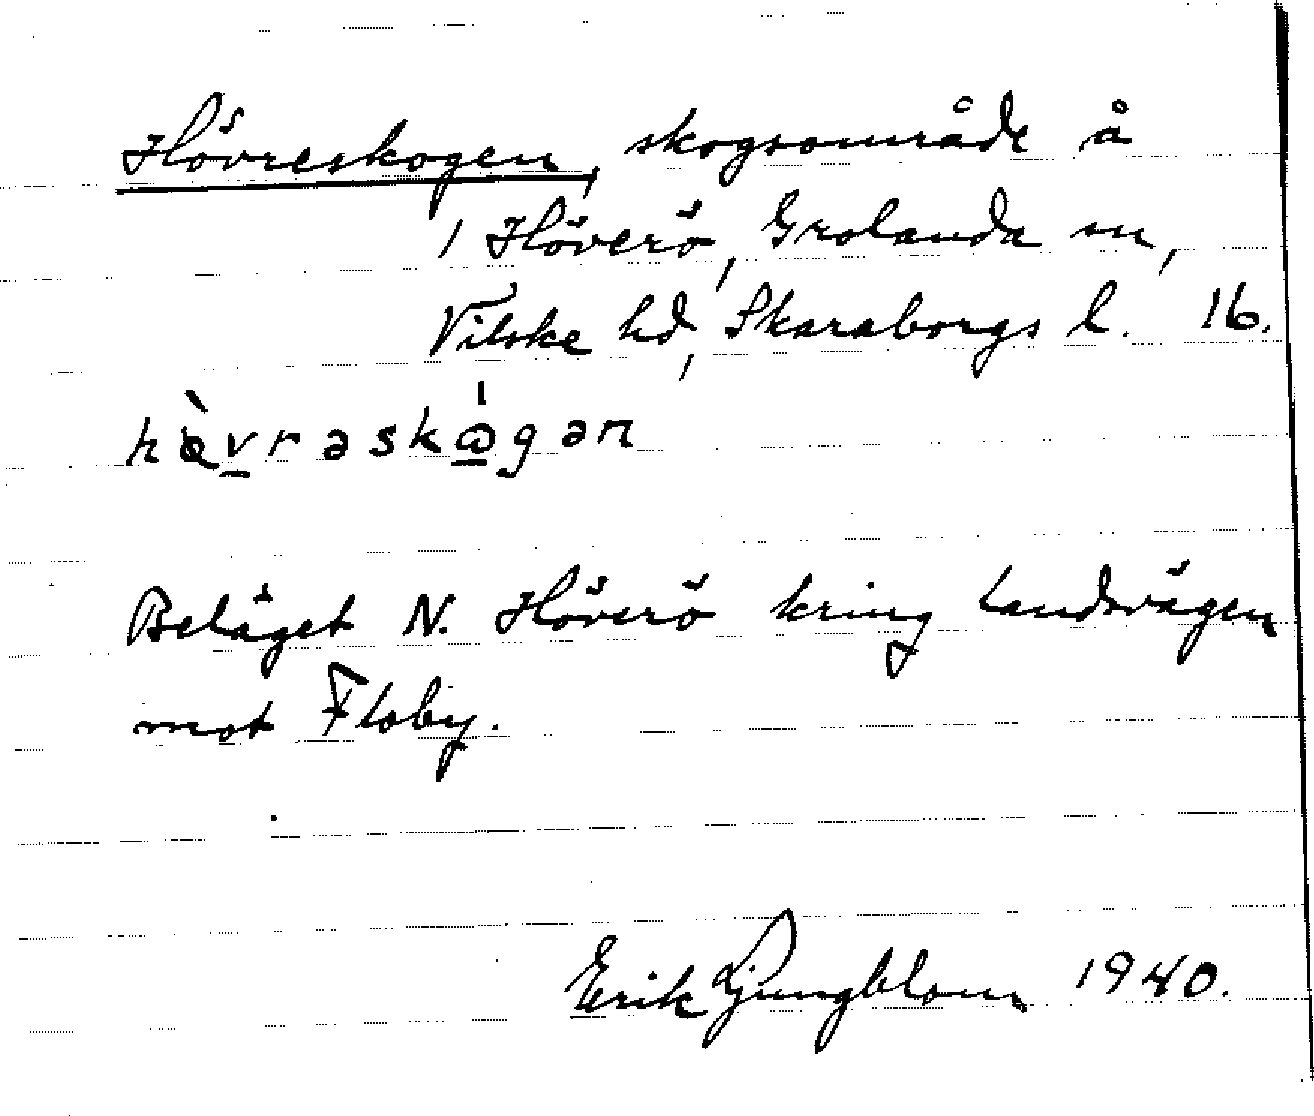 Hövreskogen, skogsområde å
1 Höverö, Grolanda sn,
Vilske hd, Skaraborgs l. 16.
Beläget N. Höverö kring landsvägen
mot Floby.
Erik Ljungblom 1940.